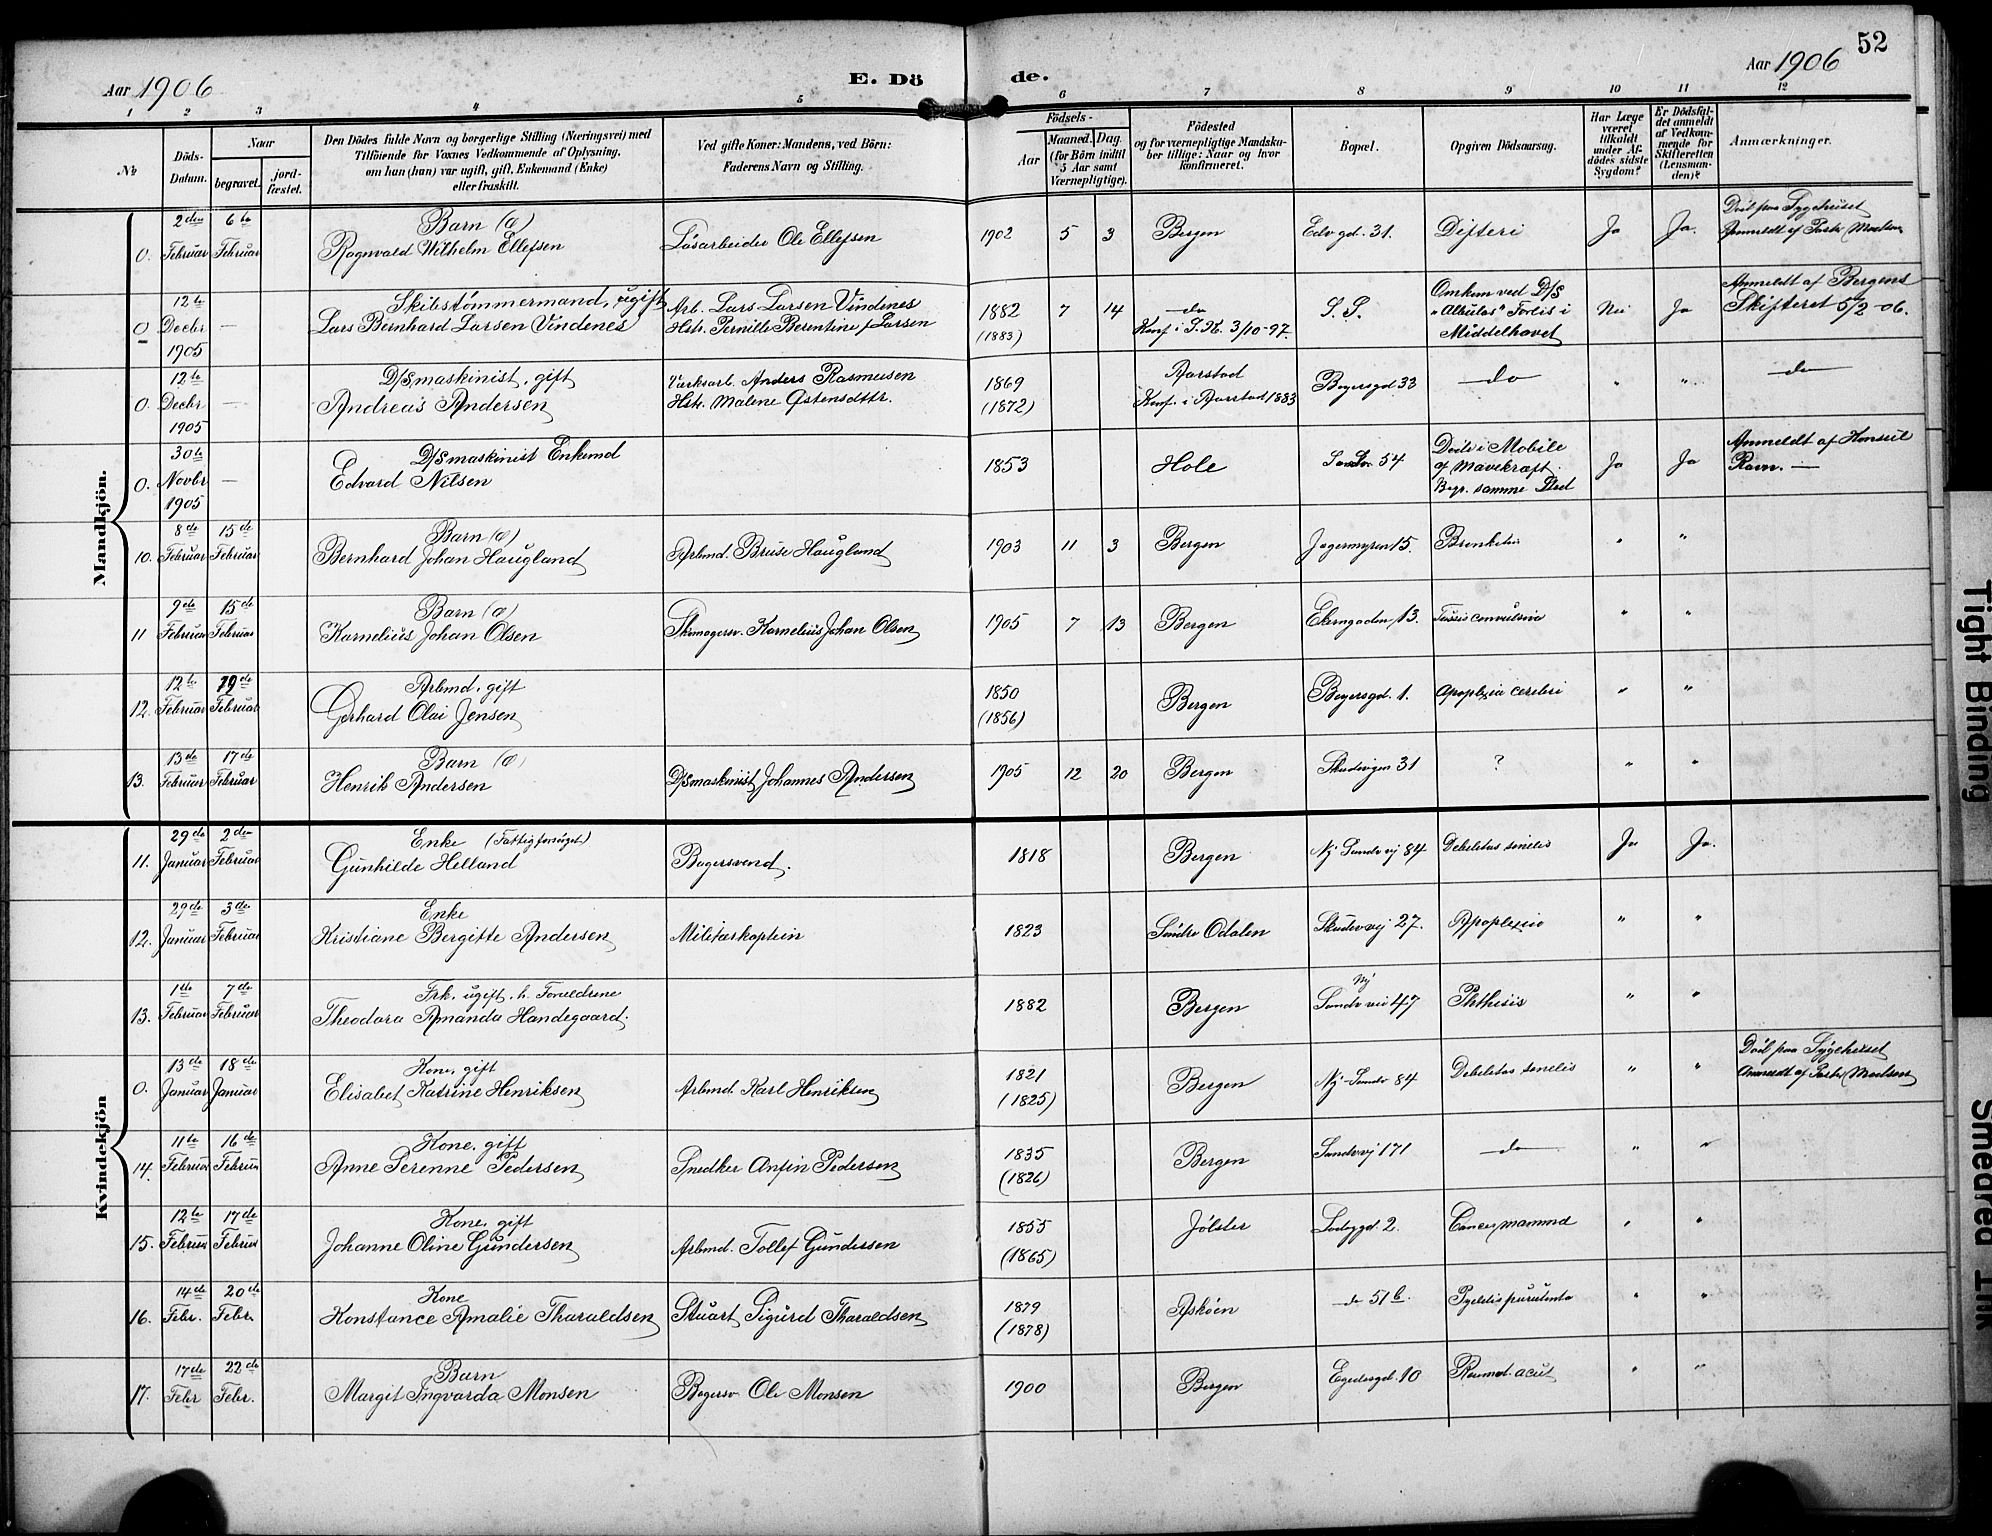 52
Aar 1906
E. Dö
de.
Aar 1906
1 2 3 4 5 6 7 8 9 10 11 12
№
Döds-Datum.
Naar
begravet.
jord-fæstet.
Den Dödes fulde Navn og borgerlige Stilling (Næringsvei) med
Tilföiende for Voxnes Vedkommende af Oplysning,
om han (hun) var ugift, gift, Enkemand (Enke)
eller fraskilt.
Ved gifte Koner: Mandens, ved Börn:
Faderens Navn og Stilling.
Födsels-
Aar
Maaned.
Dag.
(for Börn indtil
5 Aar samt
Værnepligtige).
Födested
og for værnepligtige Mandsku-
ber tillige: Naar og hvor
konfirmeret.
Bopæl.
Opgiven Dödsaarsag.
Har Læge
været
tilkaldt
under Af-
dödes sidste
Sygdom?
Er Dödsfal-
det anmeldt
af Vedkom-
mende for
Skifteretten
(Lensman-
den)?
Anmærkninger.
Mandkjön.
0. 2den Februar 6te Februar Barn (a)
Ragnvald Wilhelm Ellefsen Løsarbeider Ole Ellefsen 1902 5 3 Bergen 31. Difteri Ja Ja. Död paa Sygehuset
Anmeldt af
0 12te Decbr 1905 — Skibstömmermand, ugift
Lars Bernhard Larsen Vindenes Arb. Lars Larsen Vindenes
Hstr. Pernille Berentine f. Larsen 1882 (1883) 7 14 do
Konf. i 3/10-97. S. S. Omkom ved D/S
"Albulas" Forlis i
Middelhavet Nei Ja Anmeldt af Bergens
Skifteret 5/2-06.
0. 12te Decbr 1905 — D/Smaskinist, gift
Andreas Andersen Værksarb. Anders Rasmusen
Hstr. Malene Østensdttr. 1869 (1872) Aarstad
Konf. i Aarstad 1883 Beyersgd 33 — do — " " — do —
0. 30te Novbr 1905 — D/Smaskinist Enkemd
Edvard Nilsen 1853 Hole 54 Döde i Mobile
af Mavekræft.
Begr. samme Sted Ja Ja Anmeldt af Konsul
Ravn. —
10. 8de Februar 15de Februar Barn (a)
Bernhard Johan Haugland Arbmd. Bruse Haugland 1903 11 3 Bergen Jægermyren 15. " "
11 9de Februar 15de Februar Barn (a)
Kornelius Johan Olsen Skomagersv. Kornelius Johan Olsen 1905 7 13 Bergen 13. Tussis convulsiva " "
12. 12te Februar 19de Februar Arbmd. gift
Gerhard Olai Jensen 1850 (1856) Bergen Beyersgd. 1. Apoplexia cerebri " "
13. 13de Februar 17de Februar Barn (a)
Henrik Andersen D/Smaskinist Johannes Andersen 1905 12 20 Bergen Skudevigen 31 ? " "
Kvindekjön
11. 29de Januar 2den Februar Enke (Fattigforsørget)
Gunhilde Helland Bagersvend. 1818 Bergen Ny Sandv vej 84 Debilitas senilis Ja Ja.
12. 29de Januar 3de Februar Enke
Kristiane Bergitte Andersen Militærkaptein 1823 Søndre Odalen 27. Apoplexia " "
13. 1de Februar 7de Februar Frk. ugift. h. Forældrene
Theodora Amanda Handegaard. 1882 Bergen Ny
Sandv vei 47 Phthisis " "
0. 13de Januar 18de Januar Kone, gift
Elisabet Katrine Henriksen Arbmd. Karl Henriksen 1821 (1825) Bergen Ny-Sandv 84 Debilitas senilis " " Död paa Sygehuset
Anmeldt af
14. 11te Februar 16de Februar Kone, gift
Anne Serenne Pedersen Snedker Anfin Pedersen 1835 (1826) Bergen Sandvvj 171 — do — " "
15. 12te Februar 17de Februar Kone, gift
Johanne Oline Gundersen Arbmd. Tollef Gundersen 1855 (1865) Jølster 2. Cancer mammæ " "
16. 14de Febr. 20de Febr. Kone
Konstance Amalie Tharaldsen Stuart Sigurd Tharaldsen 1879 (1878) Askøen do 51 b. purulenta " "
17. 17de Febr 22de Febr. Barn
Margit Ingvarda Monsen Bagersv Ole Monsen 1900 Bergen 10 Reumat. acut " "
Tight Binding
Smeared Ink